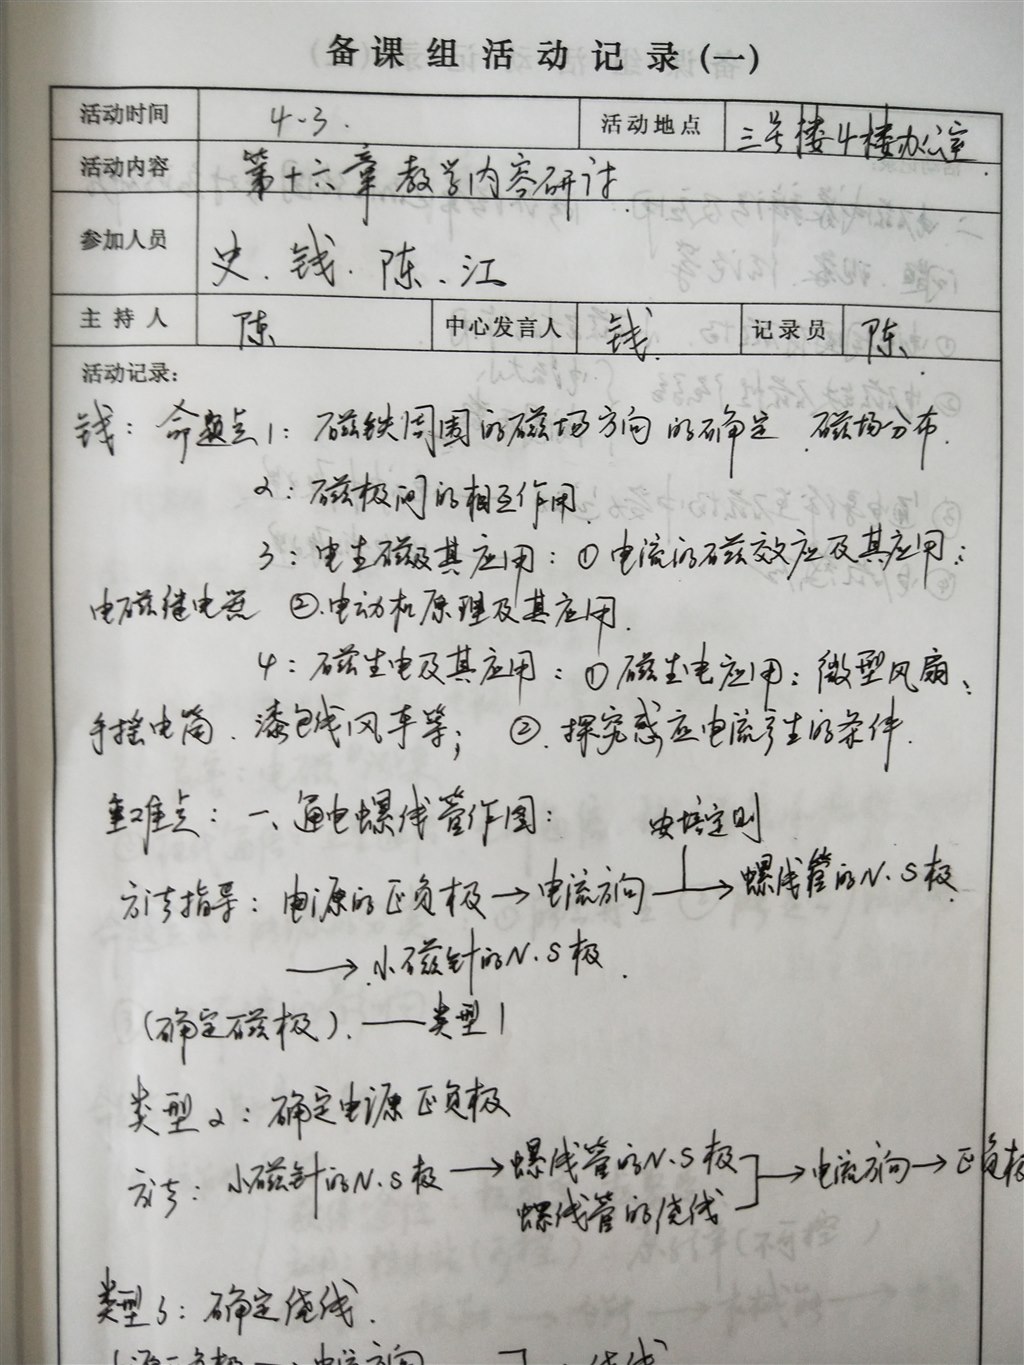 备课组活动记录(一)
活动时间 4-3. 活动地点 三号楼4楼办公室
活动内容 第十六章教学内容研讨
参加人员 史.钱.陈、江
主持人 陈 中心发言人 钱. 记录员 陈
活动记录:
钱: 命题点1: 磁铁周围的磁场方向的确定 磁场分布.
2: 磁极间的相互作用.
3: 电生磁及其应用: ①电流的磁效应及其应用:
电磁继电器 ②.电动机原理及其应用.
4: 磁生电及其应用: ①磁生电应用: 微型风扇、
手摇电筒、漆包线风车等; ②.探究感应电流产生的条件.
重难点: 一、通电螺线管作图: 安培定则
方法指导: 电源的正负极→电流方向→螺线管的N.S极
→小磁针的N.S极.
(确定磁极).——类型1
类型2: 确定电源正负极
方法: 小磁针的N.S极→螺线管的N.S极→电流方向→正负极
螺线管的绕线
类型3: 确定绕线.
电流方向 绕线